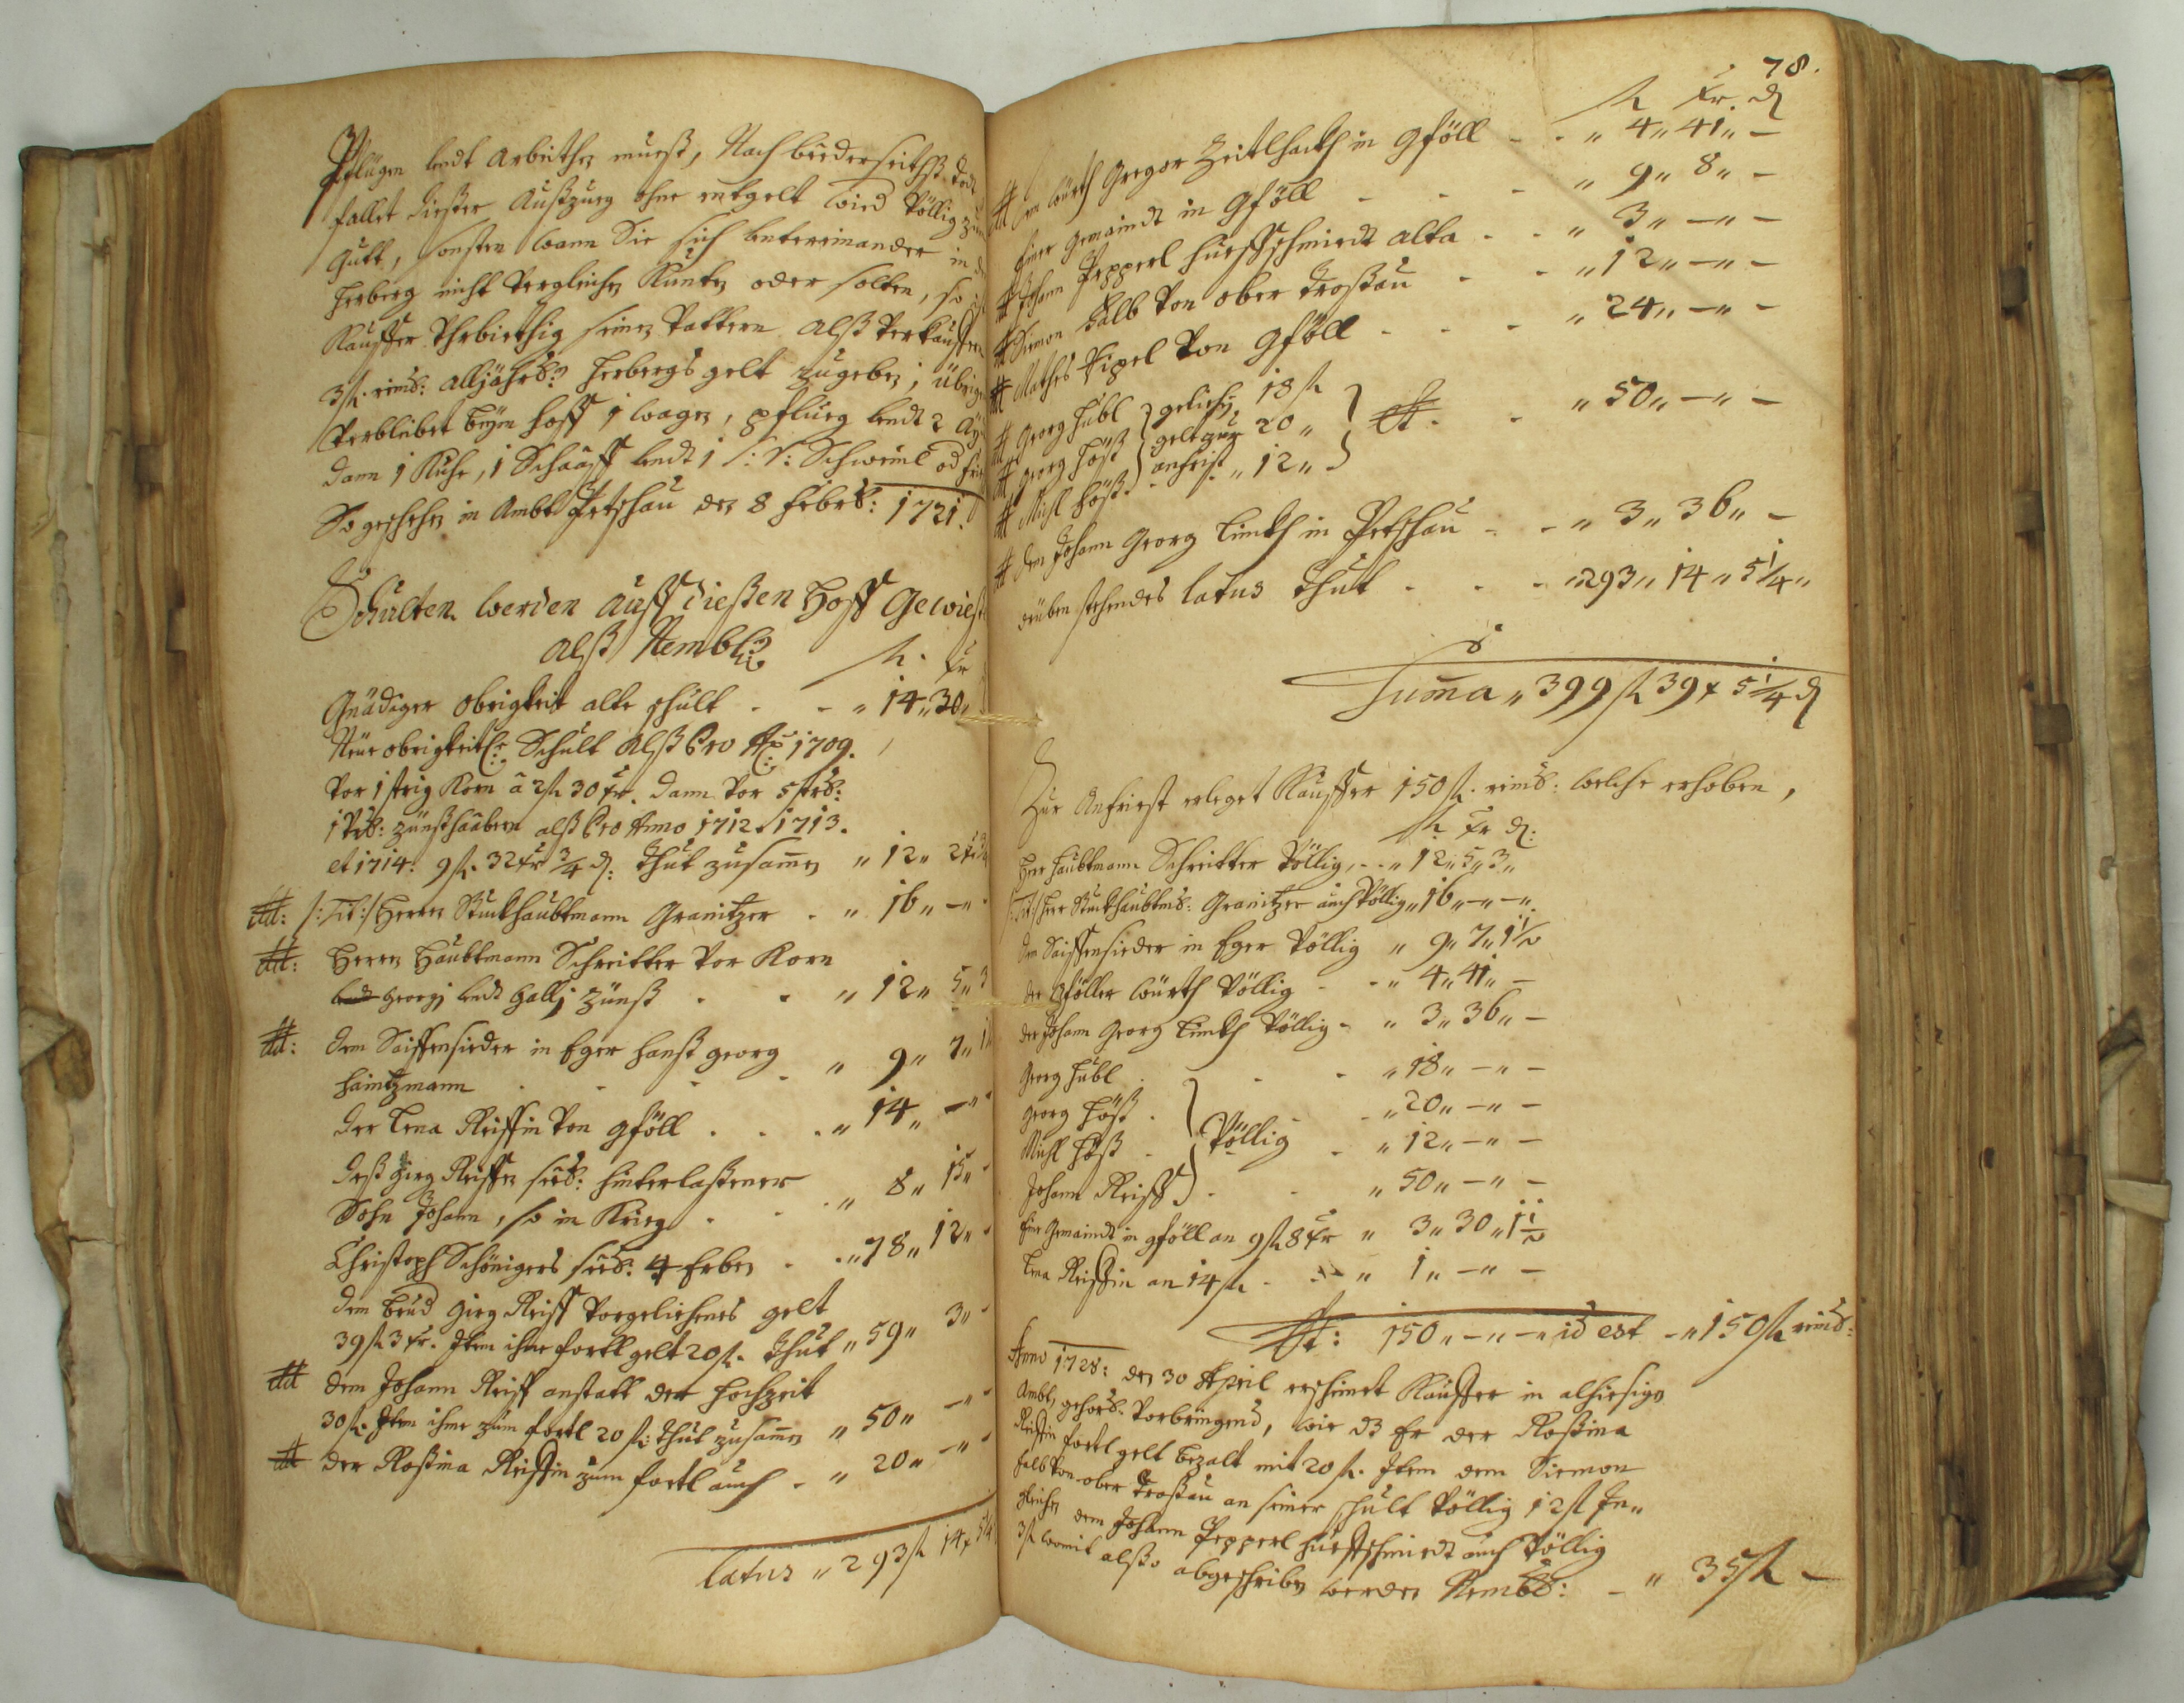 Pflügen undt Arbeithen muesß, Nach beederseithß todt
fallet dießer Außzueg ohne entgelt wied völlig zum
Gutt, sonsten wann Sie sich untereinander in der
Herberg nicht vergleichen kunten oder solten, so ist
Kauffer Ehrbiethig seinen Vattern alß verkauffern
3 fl. reinl: alljährl: herbergs gelt zugeben, übrigens
verbleibet beym Hoff 1 wagen, pflueg undt 2
dann 1 Kuhe, 1 Schaaff undt 1 s: v: Schweinl
So geschehen in Ambt Petschau den 8 Febrl: 1721.
Schulten werden auff dießen Hoff Gewießen
alß Nembl:
fl. xr
Gnädiger Obrigkeit alte schult - - " 14 " 30 "
Neue obrigkeitl: Schult alß Pro Ao: 1709.
vor 1 strig Korn â 2 fl 30 xr. dann vor 5 strl:
1 vrl: zünßhaabern alß Pro Anno 1712. 1713.
et 1714: 9 fl. 32 xr 3/4 d: thut zusammen " 12 " 2
/: Tit :/ Herrn Stuckhaubtmann Granitzer - " 16 " — "
Herrn Haubtmann Schreitter vor Korn
undt georgj undt gallj zünß - - " 12 " 5 " 3
dem Saiffensieder in Eger Hanß georg
Haintzmann - - - " 9 " 7 " 1
der Lena Reiffin von gföll - - - " 14 " — "
deß Girg Reiffen seel: hinterlaßener
Sohn Johann, so in Krieg - - " 8 " 15 "
Christoph Schönigers seel: 4 Erben - - " 78 " 12 "
dem Brud Girg Reiff vorgeliehenes gelt
39 fl 3 xr. Item ihme fortl gelt 20 fl. thut " 59 " 3 "
dem Johann Reiff anstatt der Hochzeit
30 fl. Item ihme zum fortl 20 fl: thut zusammen " 50 " — "
der Roßina Reiffin zum fortl auch - " 20 " — "
Latus " 293 fl 14 x 5 1/4
78.
fl xr. d
dem würth Gregor Zeitlhackh in Gföll - - " 4 " 41 " —
Einer Gemaindt in Gföll - - - " 9 " 8 " —
Johann Pepperl Hueffschmiedt alta - - " 3 " — " —
Siemon Kalb von ober Troßau - - " 12 " — " —
Mathes Pipel von Gföll - - - " 24 " — " —
Georg Hübl geliehen 18 fl
Georg Höß gelt zur 20 " - - " 50 " — " —
Michl Höß anfrist " 12 "
dem Johann Georg Linckh in Petschau - - " 3 " 36 " —
drüben stehendes Latus thut - - - " 293 " 14 " 5 1/4 "
Summa " 399 fl 39 x 5 1/4 d
Zur Anfriest erleget Kauffer 150 fl. reinl: welche erhoben,
fl xr d:
Herr Haubtmann Schreitter völlig, - - " 12 " 5 " 3 "
/: Tit :/ Herr Stuckhaubtml: Granitzer auch völlig " 16 " — " — "
dem Saiffensieder in Eger völlig " 9 " 7 " 1 1/2
der Gföller würth völlig - - " 4 " 41 " —
der Johann Georg Linckh völlig - " 3 " 36 " —
Georg Hübl - - - " 18 " — " —
Georg Höß - - " 20 " — " —
Michl Höß - völlig - " 12 " — " —
Johann Reiff - - " 50 " — " —
Einer Gemaindt in gföll an 9 fl 8 xr " 3 " 30 " 1 1/2
Lena Reiffin an 14 fl - - " 1 " — " —
150 " — " — " id est - " 150 fl reinl:
Anno 1728: den 30 April erscheinet Kauffer in alhiesigen
Ambt, gehorl: vorbringend, wie dz Er der Roßina
Reiffin fortl gelt bezalt mit 20 fl. Item dem Siemon
Kalb von ober Troßau an seiner schult völlig 12 fl In"
gleichen dem Johann Pepperl Hueffschmiedt auch völlig
3 fl womit alßo abgeschrieben werden Nembl: - " 35 fl —